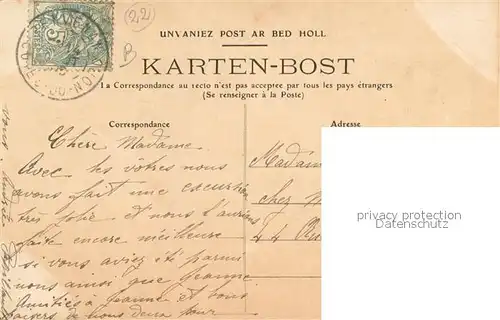 (22)
B
UNVANIEZ POST AR BED HOLL
KARTEN-BOST
La Correspondance au recto n'est pas acceptée par tous les pays étrangers
(Se renseigner à la Poste)
Correspondance
Adresse
Chère Madame.
Avec les vôtres nous
avons fait une excursion
très jolie et nous l'aurions
faite encore meilleure
si vous aviez été parmi
nous ainsi que Jeanne
Amitiés à Jeanne et bons
baisers de nous deux pour
Madam
chez M
44 Ru
privacy protection
Datenschutz